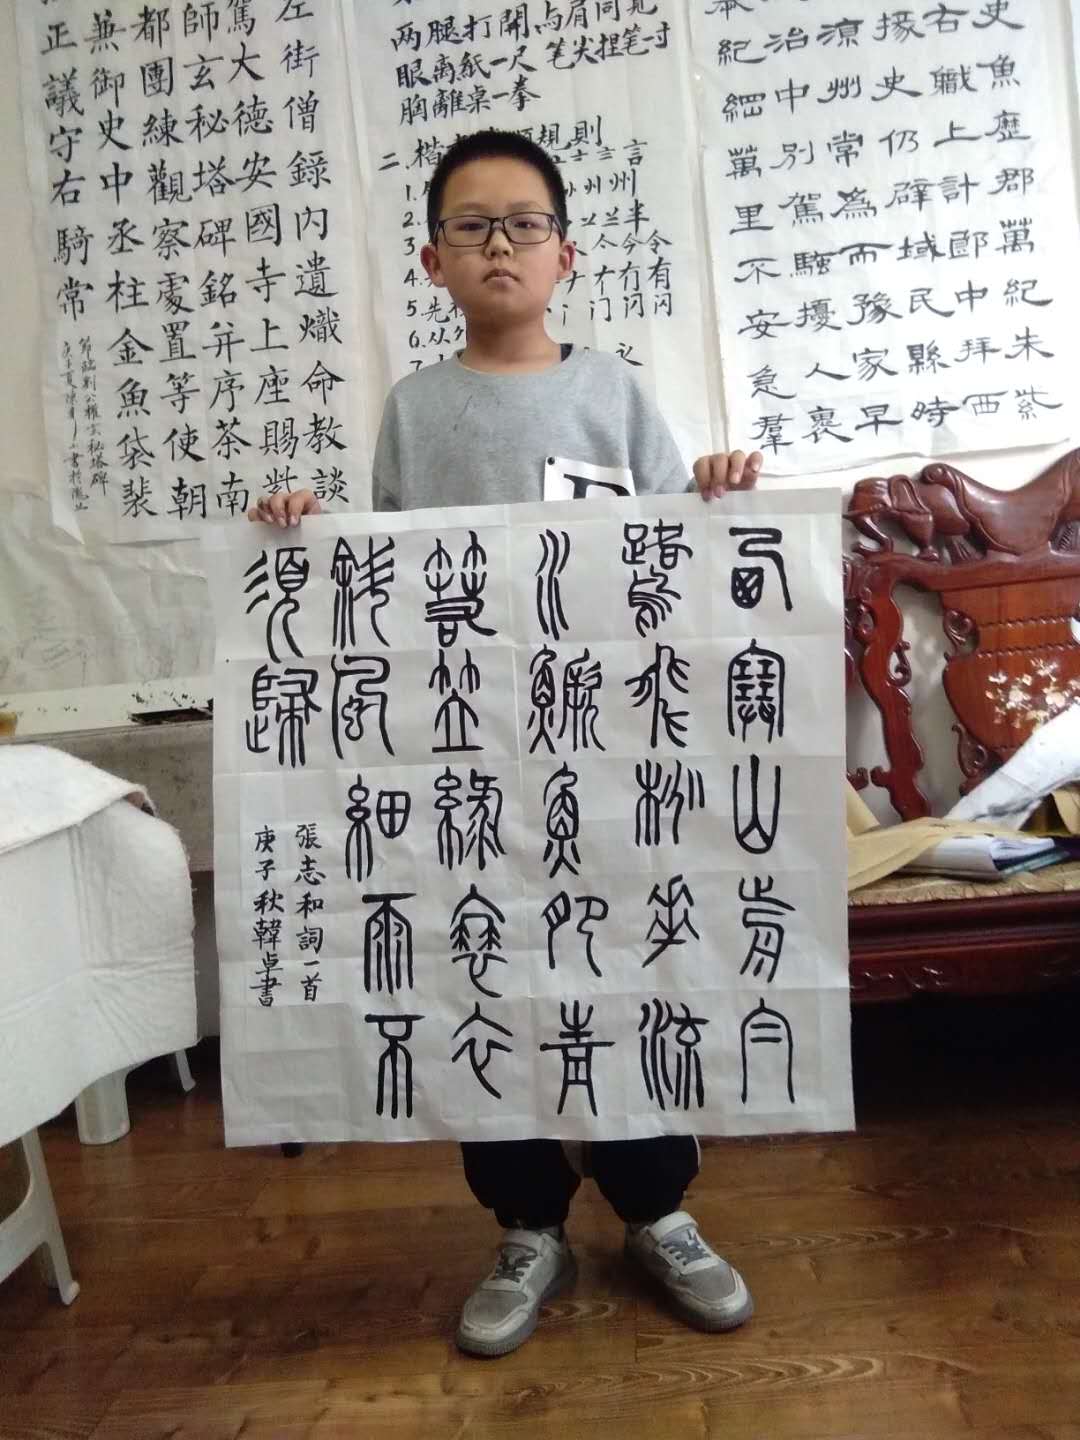 史魚歷郡萬紀朱紫
右職上計郎中拜西
掾史仍辟域民縣時
涼州常為而豫家早
治中別駕騷擾人裹
紀綱萬里不安急羣
两腿打開与肩同宽
眼离紙一尺 笔尖捏笔一寸
胸離桌一拳
二.楷 順規則
1. 州州
2. 半
3. 人今令
4. 冇有
5.先 门闪闪
6.从
7.
左街僧錄內遺熾命教談
駕大德安國寺上座賜紫
師玄秘塔碑銘并序茶南
都團練觀察處置等使朝
兼御史中丞柱金魚袋裴
正議守右騎常
節臨劉公權玄秘塔碑
西塞山前白
鷺飛桃花流
水鱖魚肥青
箬笠綠蓑衣
斜風細雨不
須歸
張志和詞一首
庚子秋韓卓書